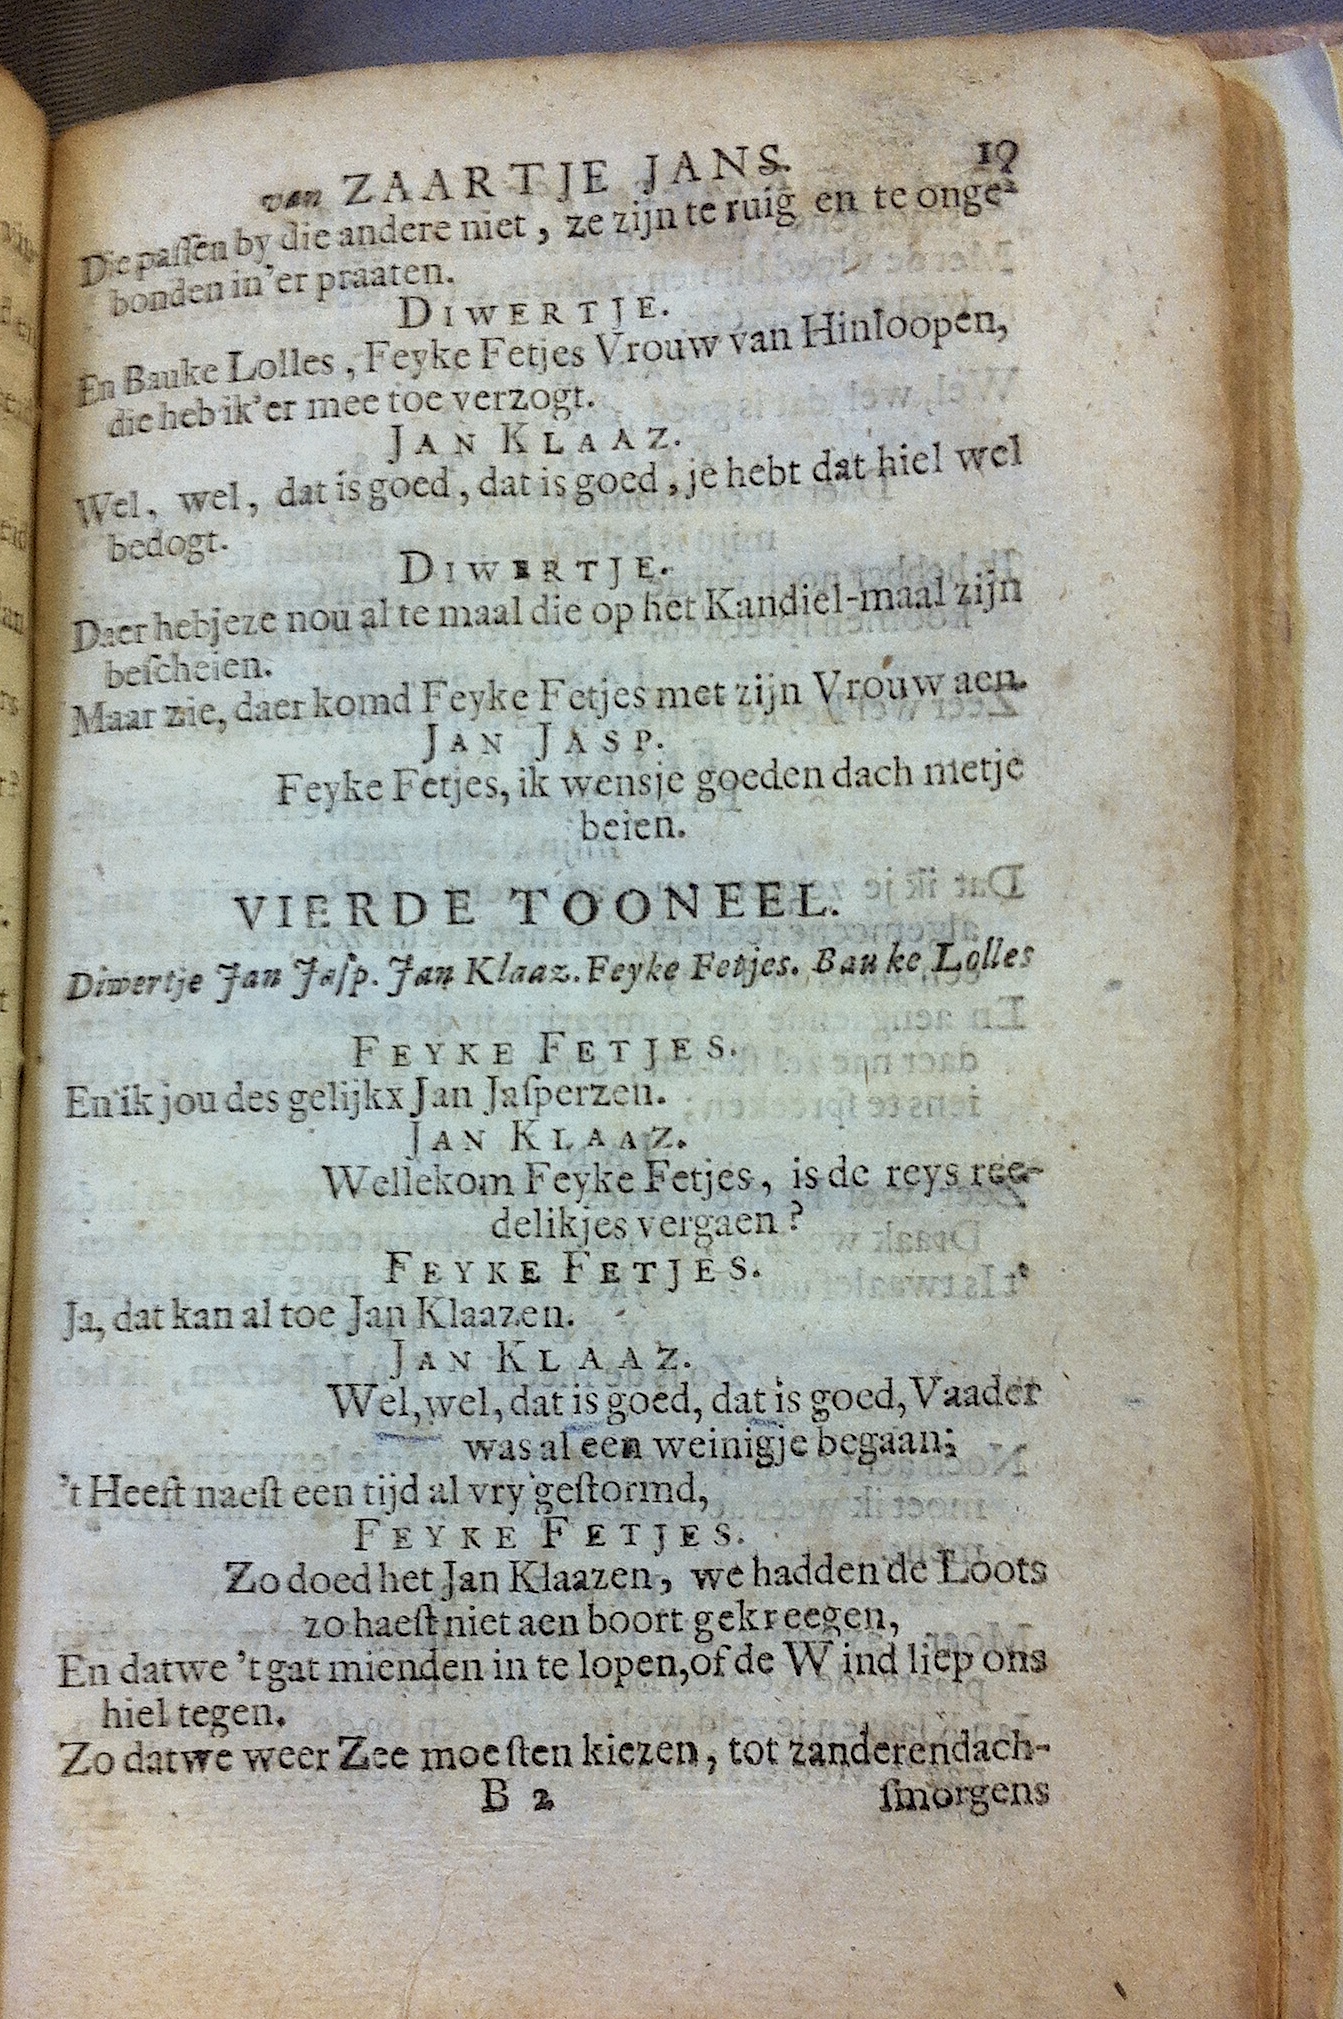 van ZAARTJE JANS. 19
Die paſſen by die andere niet, ze zijn te ruig en te onge-
bonden in'er praaten.
DIWERTJE.
En Bauke Lolles, Feyke Fetjes Vrouw van Hinloopen,
die heb ik'er mee toe verzogt.
JAN KLAAZ.
Wel, wel, dat is goed, dat is goed, je hebt dat hiel wel
bedogt.
DIWERTJE.
Daer hebjeze nou al te maal die op het Kandiel-maal zijn
beſcheien.
Maar zie, daer komd Feyke Fetjes met zijn Vrouw aen.
JAN JASP.
Feyke Fetjes, ik wensje goeden dach metje
beien.
VIERDE TOONEEL.
Diwertje Jan Jaſp. Jan Klaaz. Feyke Fetjes. Bauke Lolles
FEYKE FETJES.
En ik jou des gelijkx Jan Jaſperzen.
JAN KLAAZ.
Wellekom Feyke Fetjes, is de reys ree-
delikjes vergaen?
FEYKE FETJES.
Ja, dat kan al toe Jan Klaazen.
JAN KLAAZ.
Wel, wel, dat is goed, dat is goed, Vaader
was al een weinigje begaan;
't Heeft naeſt een tijd al vry geſtormd,
FEYKE FETJES.
Zo doed het Jan Klaazen, we hadden de Loots
zo haeſt niet aen boort gekreegen,
En datwe 't gat mienden in te lopen, of de Wind liep ons
hiel tegen.
Zo datwe weer Zee moeſten kiezen, tot zanderendach-
B 2 ſmorgens